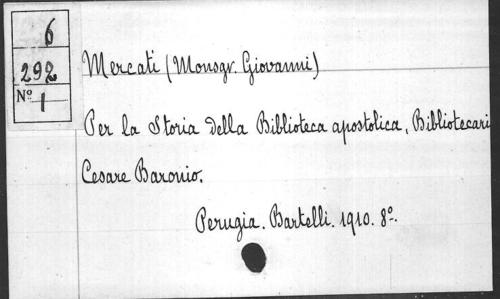 6
292
Nº 1
Mercati (Monsgr. Giovanni)
Per la Storia della Biblioteca apostolica, Bibliotecari
Cesare Baronio.
Perugia. Bartelli. 1910. 8º.